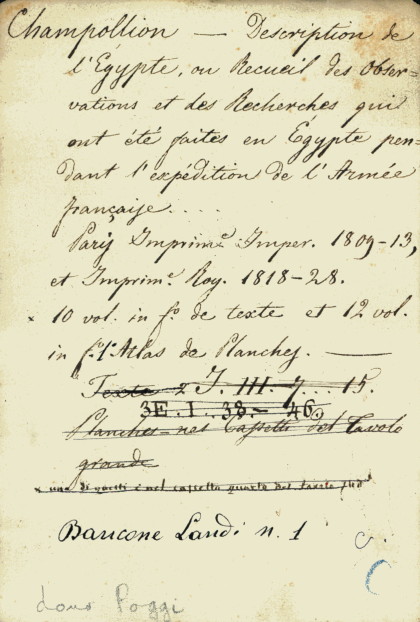 Champollion — Description de
l'Égypte, ou Recueil des Obser=
vations et des Recherches qui
ont été faites en Égypte pen=
dant l'expédition de l'Armée
française....
Paris Imprim.e Imper. 1809-13,
et Imprim.e Roy. 1818-28.
× 10 vol. in f.o de texte et 12 vol.
in f.o l'Atlas de Planches. —
Texte 2 I. III. 7... 15.
3E. I. 38.- 46
Planches = nei Cassetti del Tavolo
grande
× uno di questi è nel cassetto quarto del tavolo
Bancone Landi n. 1 C.
dono Poggi